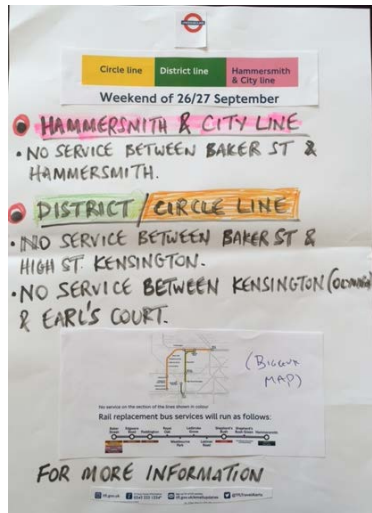 Circle line
District line
Hammersmith
& City line
Weekend of 26/27 September
HAMMERSMITH & CITY LINE
• NO SERVICE BETWEEN BAKER ST &
HAMMERSMITH.
DISTRICT / CIRCLE LINE
• NO SERVICE BETWEEN BAKER ST &
HIGH ST. KENSINGTON.
• NO SERVICE BETWEEN KENSINGTON (OLYMPIA)
& EARL'S COURT.
(BIGGER
MAP)
No service on the section of the area shown in colour
Rail replacement bus services will run as follows:
FOR MORE INFORMATION